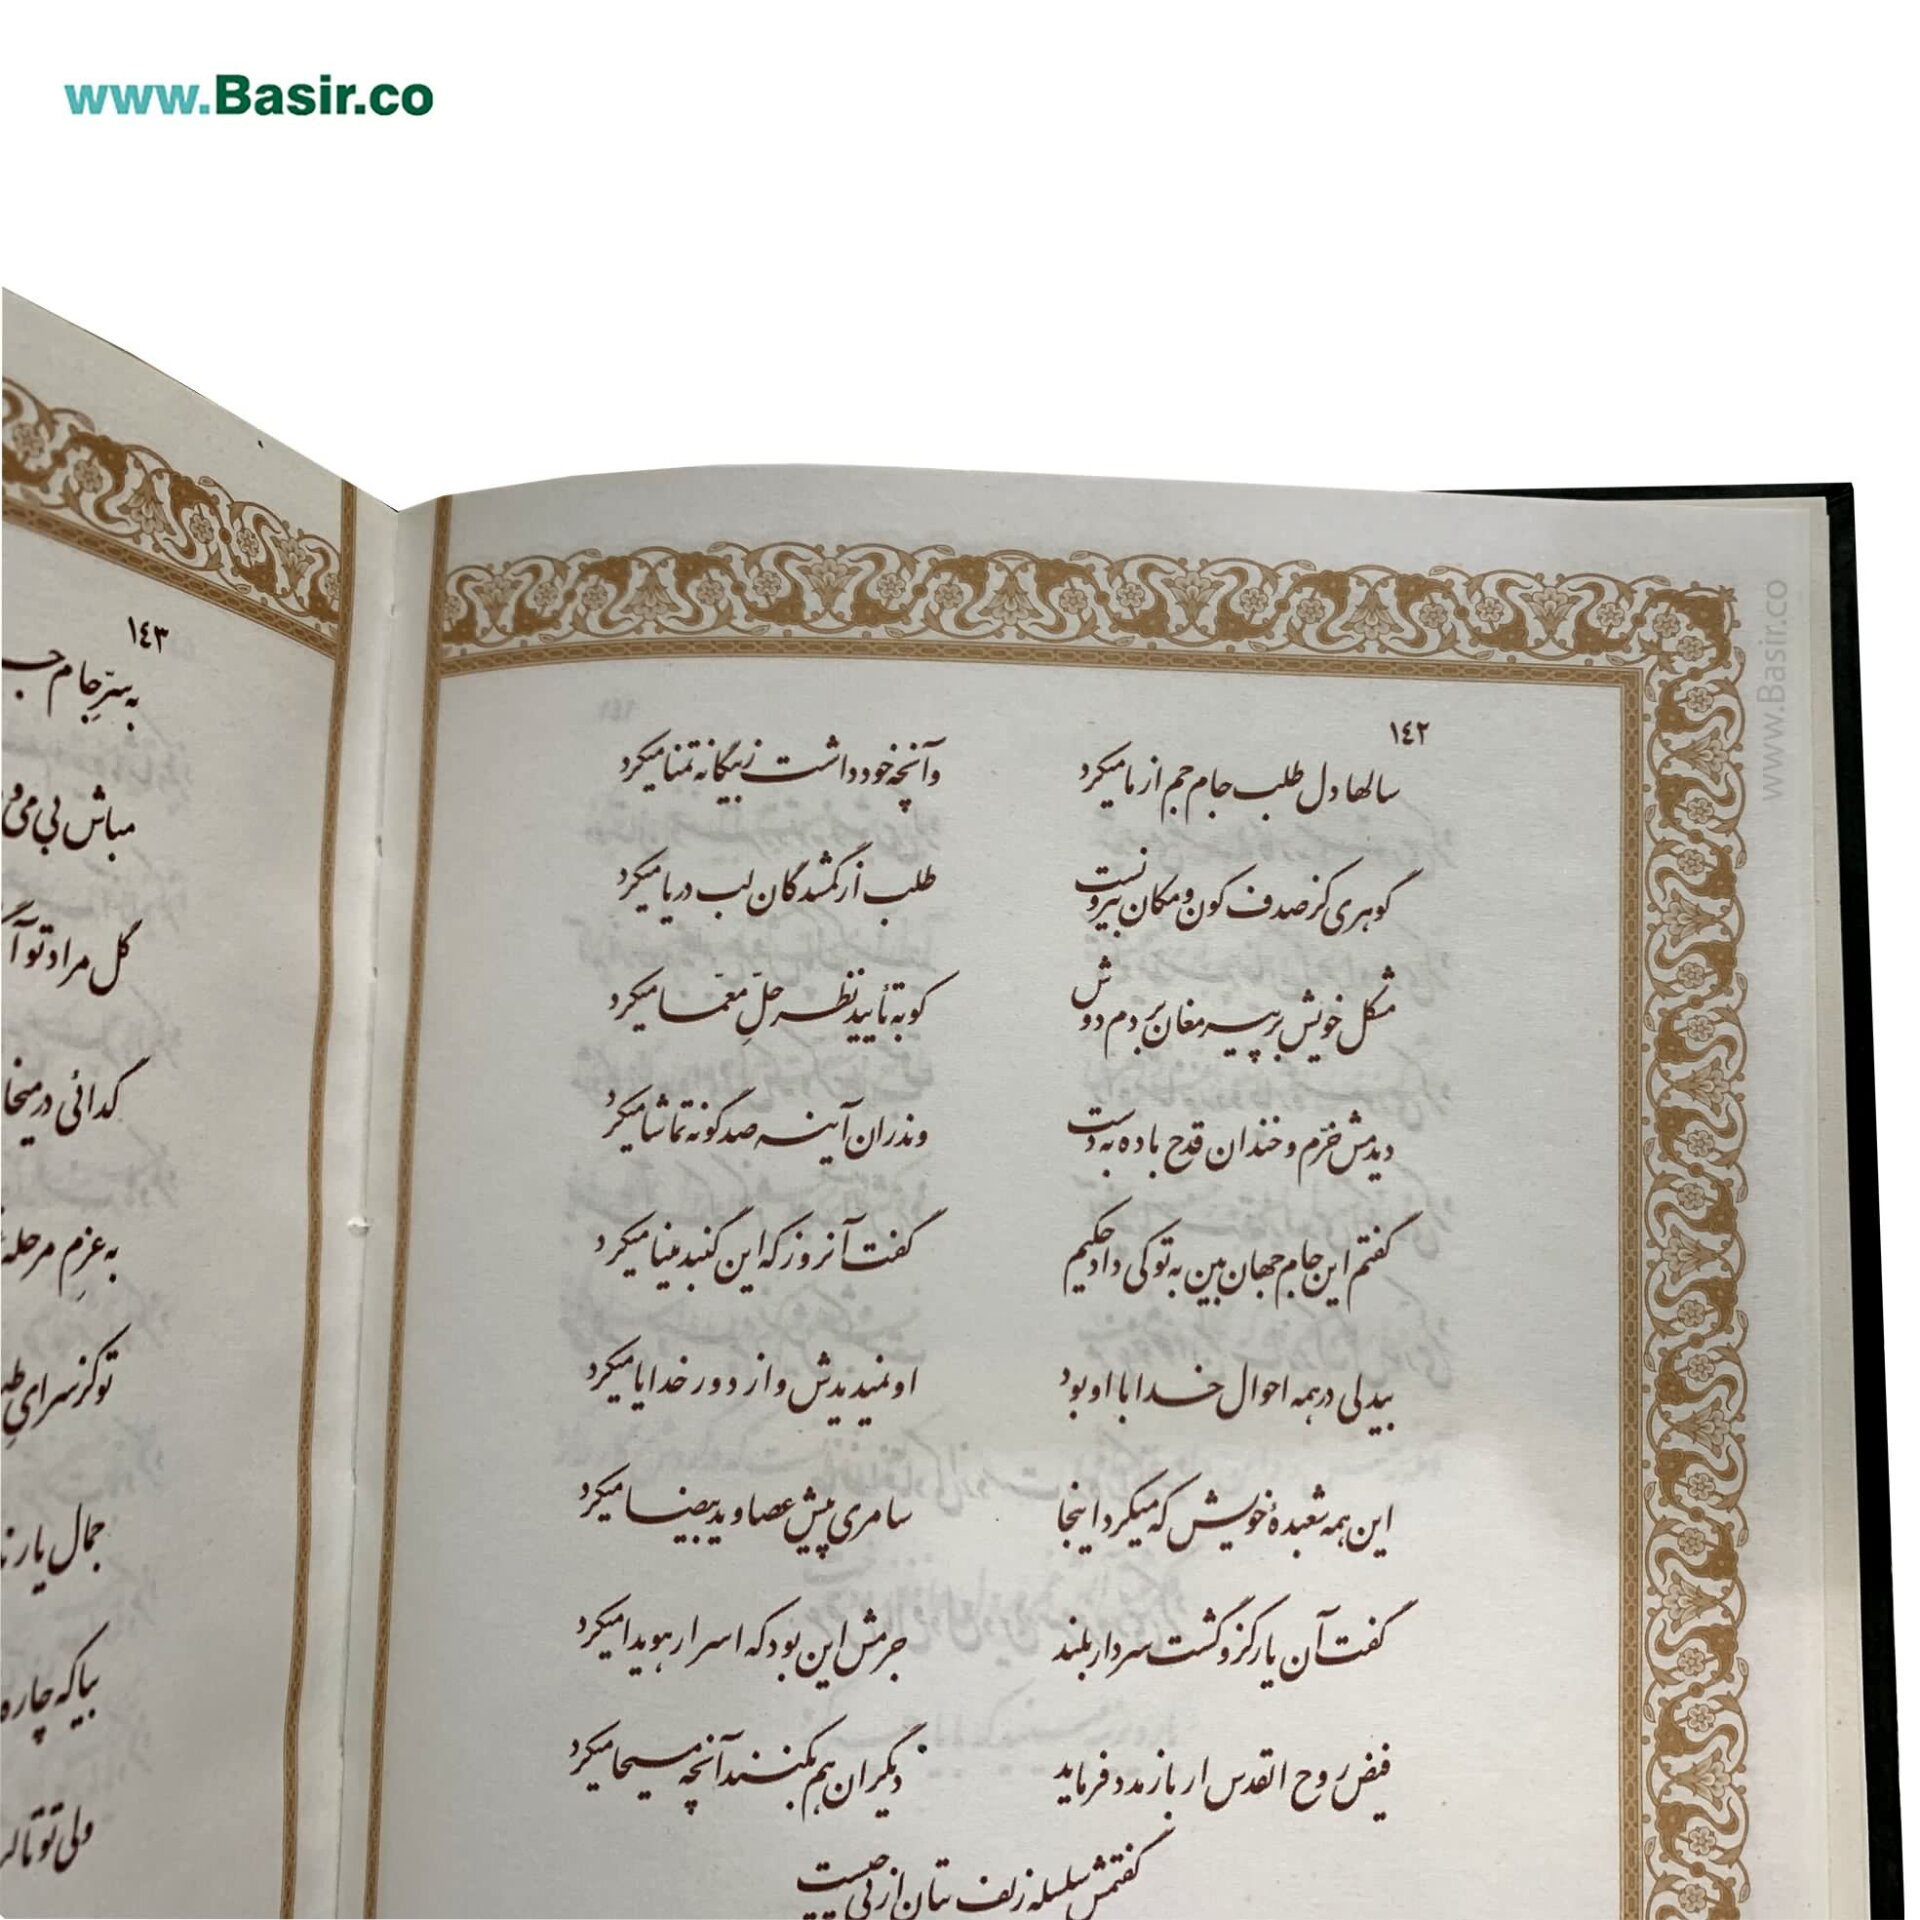 www.Basir.co
١٤٢
سالها دل طلب جام جم از ما میکرد وآنچه خود داشت ز بیگانه تمنا میکرد
گوهری کز صدف کون و مکان بیرونست طلب از گمشدگان لب دریا میکرد
مشکل خویش بر پیر مغان بردم دوش کو به تأیید نظر حلِّ معمّا میکرد
دیدمش خرّم و خندان قدح باده به دست وندران آینه صد گونه تماشا میکرد
گفتم این جام جهان بین به تو کی داد حکیم گفت آنروز که این گنبد مینا میکرد
بیدلی در همه احوال خدا با او بود او نمیدیدش و از دور خدایا میکرد
این همه شعبدهٔ خویش که میکرد اینجا سامری پیش عصا و ید بیضا میکرد
گفت آن یار کزو گشت سر دار بلند جرمش این بود که اسرار هویدا میکرد
فیض روح القدس ار باز مدد فرماید دیگران هم بکنند آنچه مسیحا میکرد
گفتمش سلسله زلف بتان از پی چیست
١٤٣
به سرِّ جام
مباش بی می و
گل مراد تو آ
گدائی در میخا
به عزمِ مرحله
تو کز سرای
جمال یار
بیا که چاره
ولی تو تا
www.Basir.co